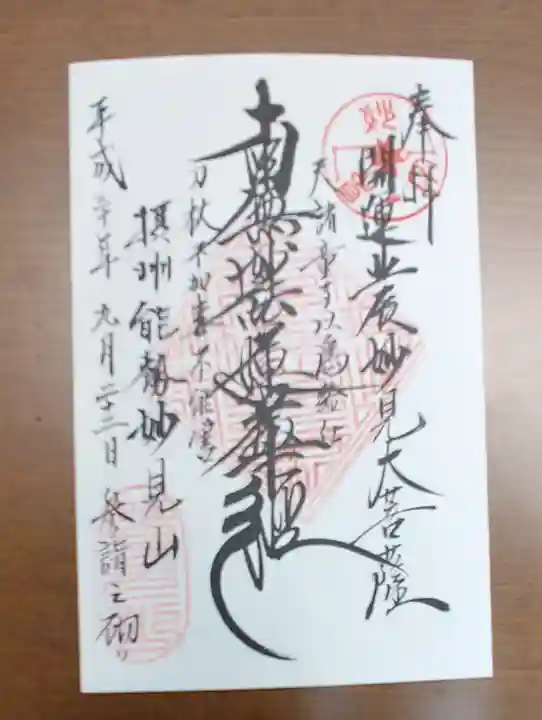 奉拝
開運北辰妙見大菩薩
天諸童子以為給仕
南無妙法蓮華経
刀杖不加毒不能害
摂州能勢妙見山
平成 年 九月廿二日 参詣之砌